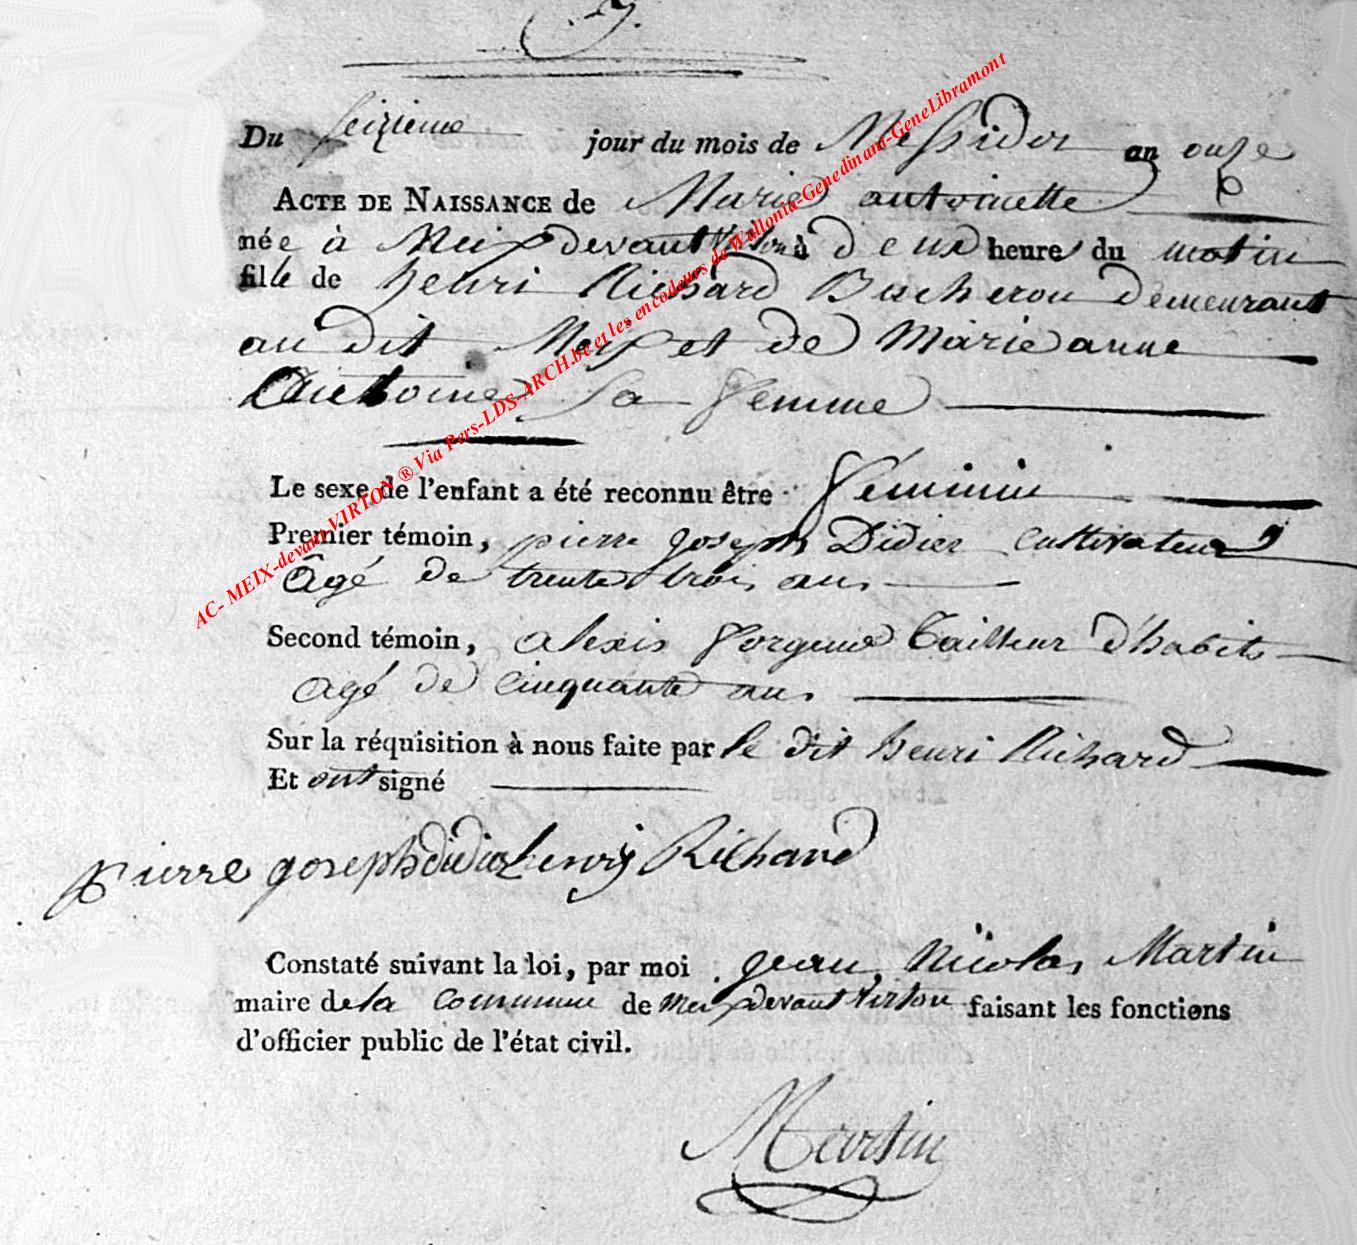 Du seizieme jour du mois de Messidor an onze
ACTE DE NAISSANCE de Marie antoinette
née à Meix devant Virton à deux heures du matin
fille de henri Richard Bucheron demeurant
au dit Meix et de Marie anne
Antoine Sa femme
Le sexe de l'enfant a été reconnu être féminin
Premier témoin, pierre joseph Didier Cultivateur
agé de trente trois ans
Second témoin, alexis Tailleur d'habits
agé de cinquante ans
Sur la réquisition à nous faite par le dit henri Richard
Et ont signé
pierre joseph didier henry Richard
Constaté suivant la loi, par moi jean Nicolas Martin
maire de la commune de Meix devant Virton faisant les fonctions
d'officier public de l'état civil.
Martin
AC- MEIX-devant-VIRTON ® Via Pers-LDS-ARCH.be et les encodeurs de Wallonia-Genedinant-GeneLibramont